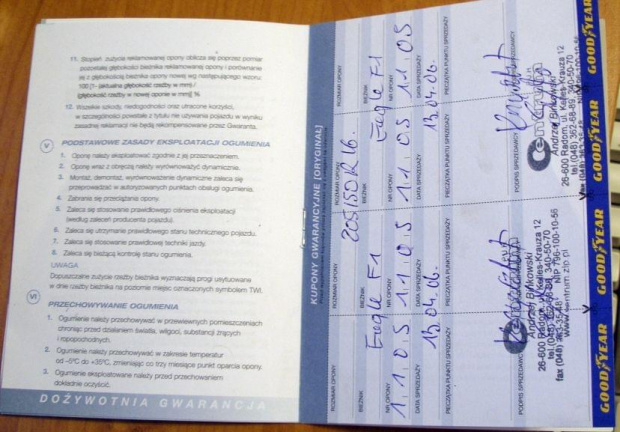 11. Stopień zużycia reklamowanej opony oblicza się poprzez pomiar
pozostałej głębokości bieżnika reklamowanej opony i porównanie
jej z głębokością bieżnika opony nowej wg następującego wzoru
100 [1- aktualna głębokość rzeźby w mm) /
(głębokość rzeźby w nowej oponie w mm)] %
12. Wszelkie szkody, niedogodności oraz utracone korzyści,
w szczególności powstałe z tytułu nie używania pojazdu w wyniku
zasadnej reklamacji nie będą rekompensowane przez Gwaranta.
V PODSTAWOWE ZASADY EKSPLOATACJI OGUMIENIA
1. Opony należy eksploatować zgodnie z jej przeznaczeniem.
2. Opony wraz z obręczą należy wyrównoważyć dynamicznie.
3. Montaż, demontaż, wyrównoważenie dynamiczne zaleca się
przeprowadzać w autoryzowanych punktach obsługi ogumienia.
4. Zabrania się przeciążania opony.
5. Zaleca się stosowanie prawidłowego ciśnienia eksploatacji
(według zaleceń producenta pojazdu).
6. Zaleca się utrzymanie prawidłowego stanu technicznego pojazdu.
7. Zaleca się stosowanie prawidłowej techniki jazdy.
8. Zaleca się bieżącą kontrolę stanu ogumienia.
UWAGA
Dopuszczalne zużycie rzeźby bieżnika wyznaczają progi usytuowane
w dnie rzeźby bieżnika na poziomie miejsc oznaczonych symbolem TWI.
VI PRZECHOWYWANIE OGUMIENIA
1. Ogumienie należy przechowywać w przewiewnych pomieszczeniach
chroniąc przed działaniem światła, wilgoci, substancji żrących
i ropopochodnych.
2. Ogumienie należy przechowywać w zakresie temperatur
od -5°C do +35°C, zmieniając co trzy miesiące punkt oparcia opony.
3. Ogumienie eksploatowane należy przed przechowaniem
dokładnie oczyścić.
DOŻYWOTNIA GWARANCJA
KUPONY GWARANCYJNE [ORYGINAŁ]
ROZMIAR OPONY
205/50 R 16.
BIEŻNIK
Eagle F1
NR OPONY
1 1 0 5
DATA SPRZEDAŻY
13.04.06.
PIECZĄTKA PUNKTU SPRZEDAŻY
PODPIS SPRZEDAWCY
Andrzej Bińkowski
26-600 Radom, ul. Kelles-Krauza 12
340-50-70
fax (048) 363-55-48 NIP 796-100-10-56
www.sentrum.zip.pl
GOODYEAR
GOODYEAR
ROZMIAR OPONY
BIEŻNIK
Eagle F1
NR OPONY
1 1 0 5
DATA SPRZEDAŻY
13.04.06.
PIECZĄTKA PUNKTU SPRZEDAŻY
PODPIS SPRZEDAWCY
Andrzej Bińkowski
26-600 Radom, ul. Kelles-Krauza 12
tel.(048) 362-68-89, 340-50-70
GOODYEAR
GOODYEAR